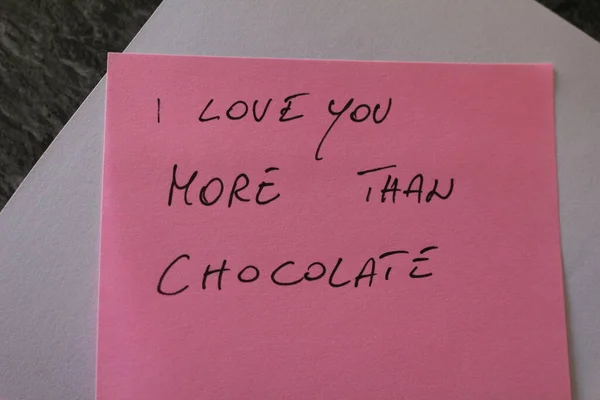 I LOVE YOU
MORE THAN
CHOCOLATE